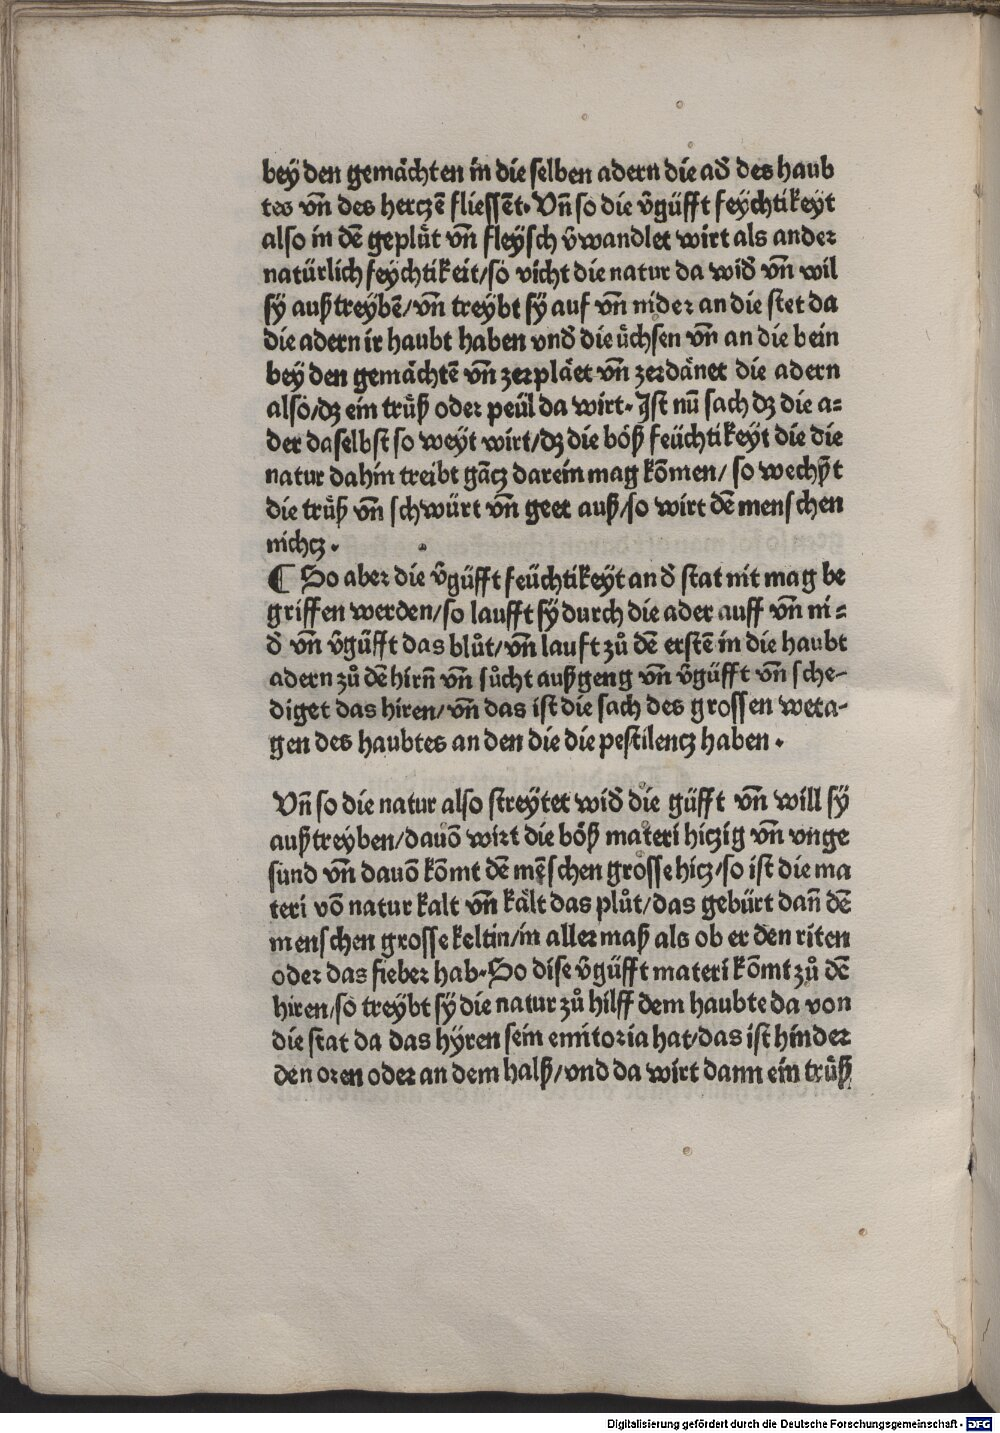 bey den gemächten in die selben adern die ad̄ des haub
tes vn̄ des herczē fliessēt. Vn̄ so die v̄güfft feÿchtikeyt
also in dē geplůt vn̄ fleÿsch v̄wandlet wirt als ander
natürlich feÿchtikeit/so vicht die natur da wid̄ vn̄ wil
sÿ außtreybē/vn̄ treybt sÿ auf vn̄ nider an die stet da
die adern ir haubt haben vnd̄ die üchsen vn̄ an die bein
bey den gemächtē vn̄ zerpläet vn̄ zerdänet die adern
also/dz ein trüß oder peül da wirt. Ist nū sach dz die a=
der daselbst so weyt wirt/dz die böß feüchtikeyt die die
natur dahin treibt gācz darein mag kōmen/ so wechß̄t
die trüß vn̄ schwürt vn̄ geet auß/so wirt dē menschen
nichcz.
¶ So aber die v̄güfft feüchtikeyt an d̄ stat nit mag be
griffen werden/so laufft sÿ durch die ader auff vn̄ ni=
d̄ vn̄ v̄güfft das blůt/vn̄ lauft zů dē erstē in die haubt
adern zů dē hirn̄ vn̄ sůcht außgeng vn̄ v̄güfft vn̄ sche-
diget das hiren/vn̄ das ist die sach des grossen weta-
gen des haubtes an den die die pestilencz haben.
Vn̄ so die natur also streÿtet wid̄ die güfft vn̄ will sÿ
außtreyben/dauō wirt die böß materi hiczig vn̄ vnge
sund vn̄ dauō kōmt dē mēschen grosse hicz/so ist die ma
teri vō natur kalt vn̄ kält das plůt/das gebürt dan̄ dē
menschen grosse keltin/in aller maß als ob er den riten
oder das fieber hab. So dise v̄güfft materi kōmt zů dē
hiren/so treybt sÿ die natur zů hilff dem haubte da von
die stat da das hÿren sein emitoria hat/das ist hinder
den oren oder an dem halß/vnd da wirt dann ein trüß
Digitalisierung gefördert durch die Deutsche Forschungsgemeinschaft - DFG